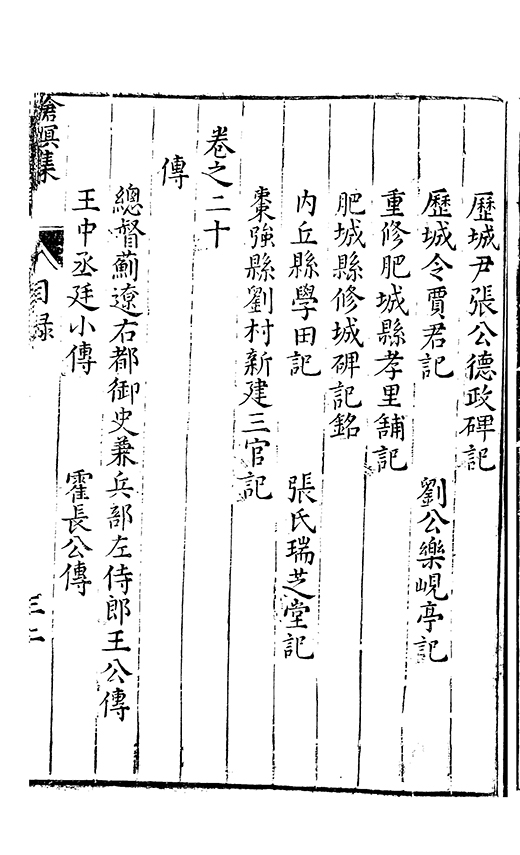 歷城尹張公德政碑記
歷城令賈君記　劉公樂峴亭記
重修肥城縣孝里舖記
肥城縣修城碑記銘
內丘縣學田記　張氏瑞芝堂記
棗強縣劉村新建三官記
卷之二十
傳
總督薊遼右都御史兼兵部左侍郎王公傳
王中丞廷小傳　霍長公傳
滄溟集
目錄